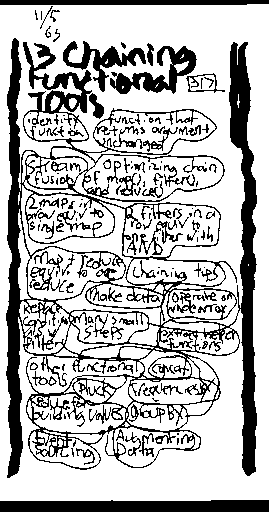 11/5
13 Chaining
Functional
Tools 317
identity
function
function that
returns argument
unchanged
Stream
fusion
Optimizing chain
of maps, filters,
and reduces
2 maps in a
row equiv to
single map
2 filters in a
row equiv to
one filter with
AND
map + reduce
equiv. to one
reduce
Chaining tips
Make data
Operate on
whole array
Replace
conditionals w/
filters
many small
steps
extract helper
functions
other functional
tools
concat
Pluck
frequenciesBy
reduce for
building values
GroupBy
Event
sourcing
Augmenting
Data